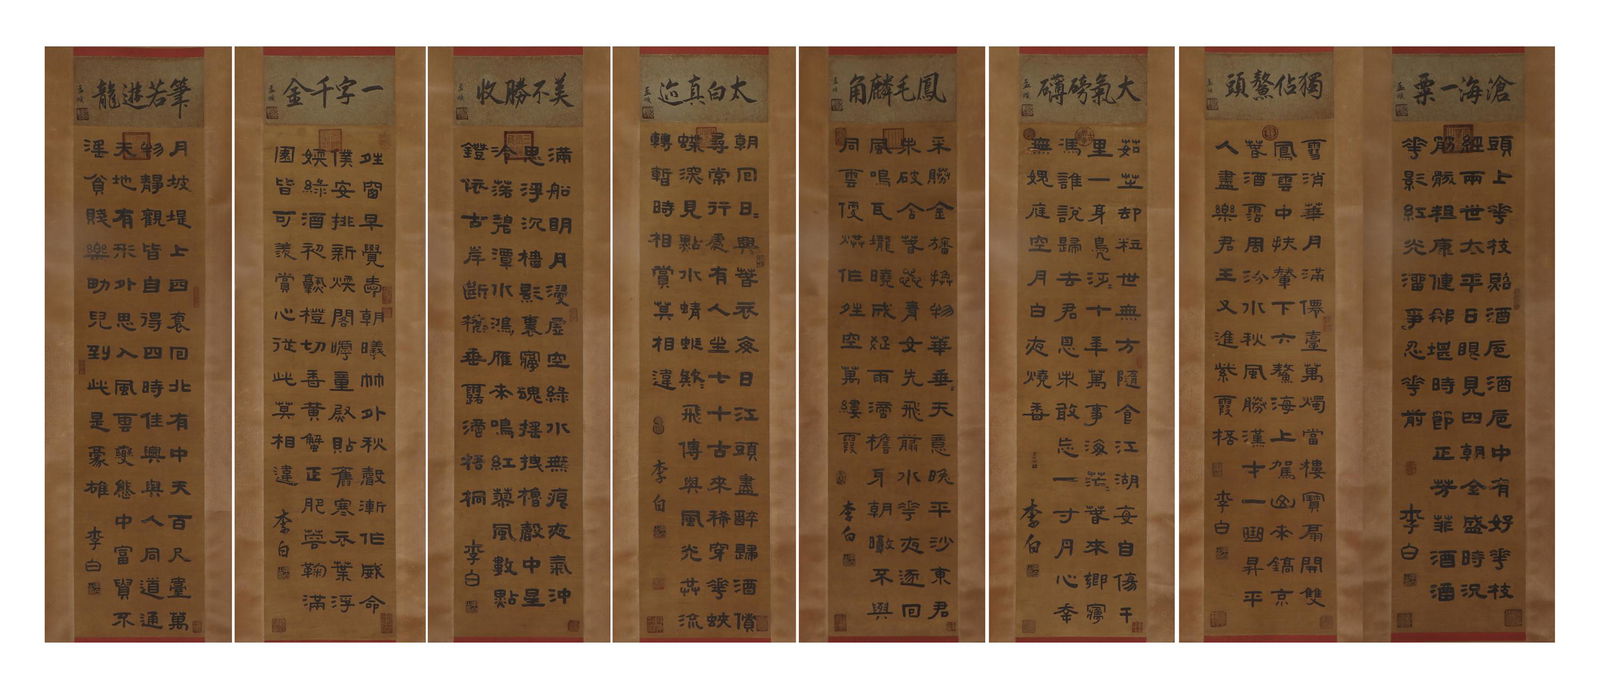 滄海一粟
頭上花枝照酒卮酒卮中有好花枝
經兩世太平日眼見四朝全盛時況
筋骸粗康健那堪時節正芳菲酒涵
花影紅光溜爭忍花前
李白
獨佔鰲頭
雪消華月滿僊臺萬燭當樓寶扇開雙
鳳雲中扶輦下六鰲海上駕山來鎬京
春酒霑周汾水秋風勝漢才一曲昇平
人盡樂君王又進紫霞桮
李白
大氣磅礴
茹芝却粒世無方隨食江湖每自傷千
里一身鳧泛泛十年萬事海茫茫春來鄉夢
馮誰說歸去君恩未敢忘一寸丹心幸
無媿庭空月白夜燒香
李白
鳳毛麟角
采勝金旛換物華垂垂天意晚平沙東君
未破含春蕊青女先飛翦水花夜逐回
風鳴瓦壠曉成疑雨滴檐牙朝暾不與
同雲便烘作晴空萬縷霞
李白
太白真迹
朝回日日典春衣每日江頭盡醉歸酒債
尋常行處有人生七十古來稀穿花蛺
蝶深深見點水蜻蜓款款飛傳與風光共流
轉暫時相賞莫相違
李白
美不勝收
滿船明月浸虛空綠水無痕夜氣沖
思浮沉檣影裏夢魂搖拽櫓聲中星
冷落碧潭水鴻雁來鳴紅蓼風數點
鐙依古岸斷橋垂露滴梧桐
李白
一字千金
晴窗早覺愛朝曦竹外秋聲漸作威命
僕安排新煖閣呼童熨貼舊寒衣葉浮
嫩綠酒初熟橙切香黃蟹正肥蓉菊滿
園皆可羨賞心從此莫相違
李白
筆若遊龍
月坡堤上四裵回北有中天百尺臺萬
物靜觀皆自得四時佳興與人同道通
天地有形外思入風雲變態中富貴不
淫貧賤樂男兒到此是豪雄
李白